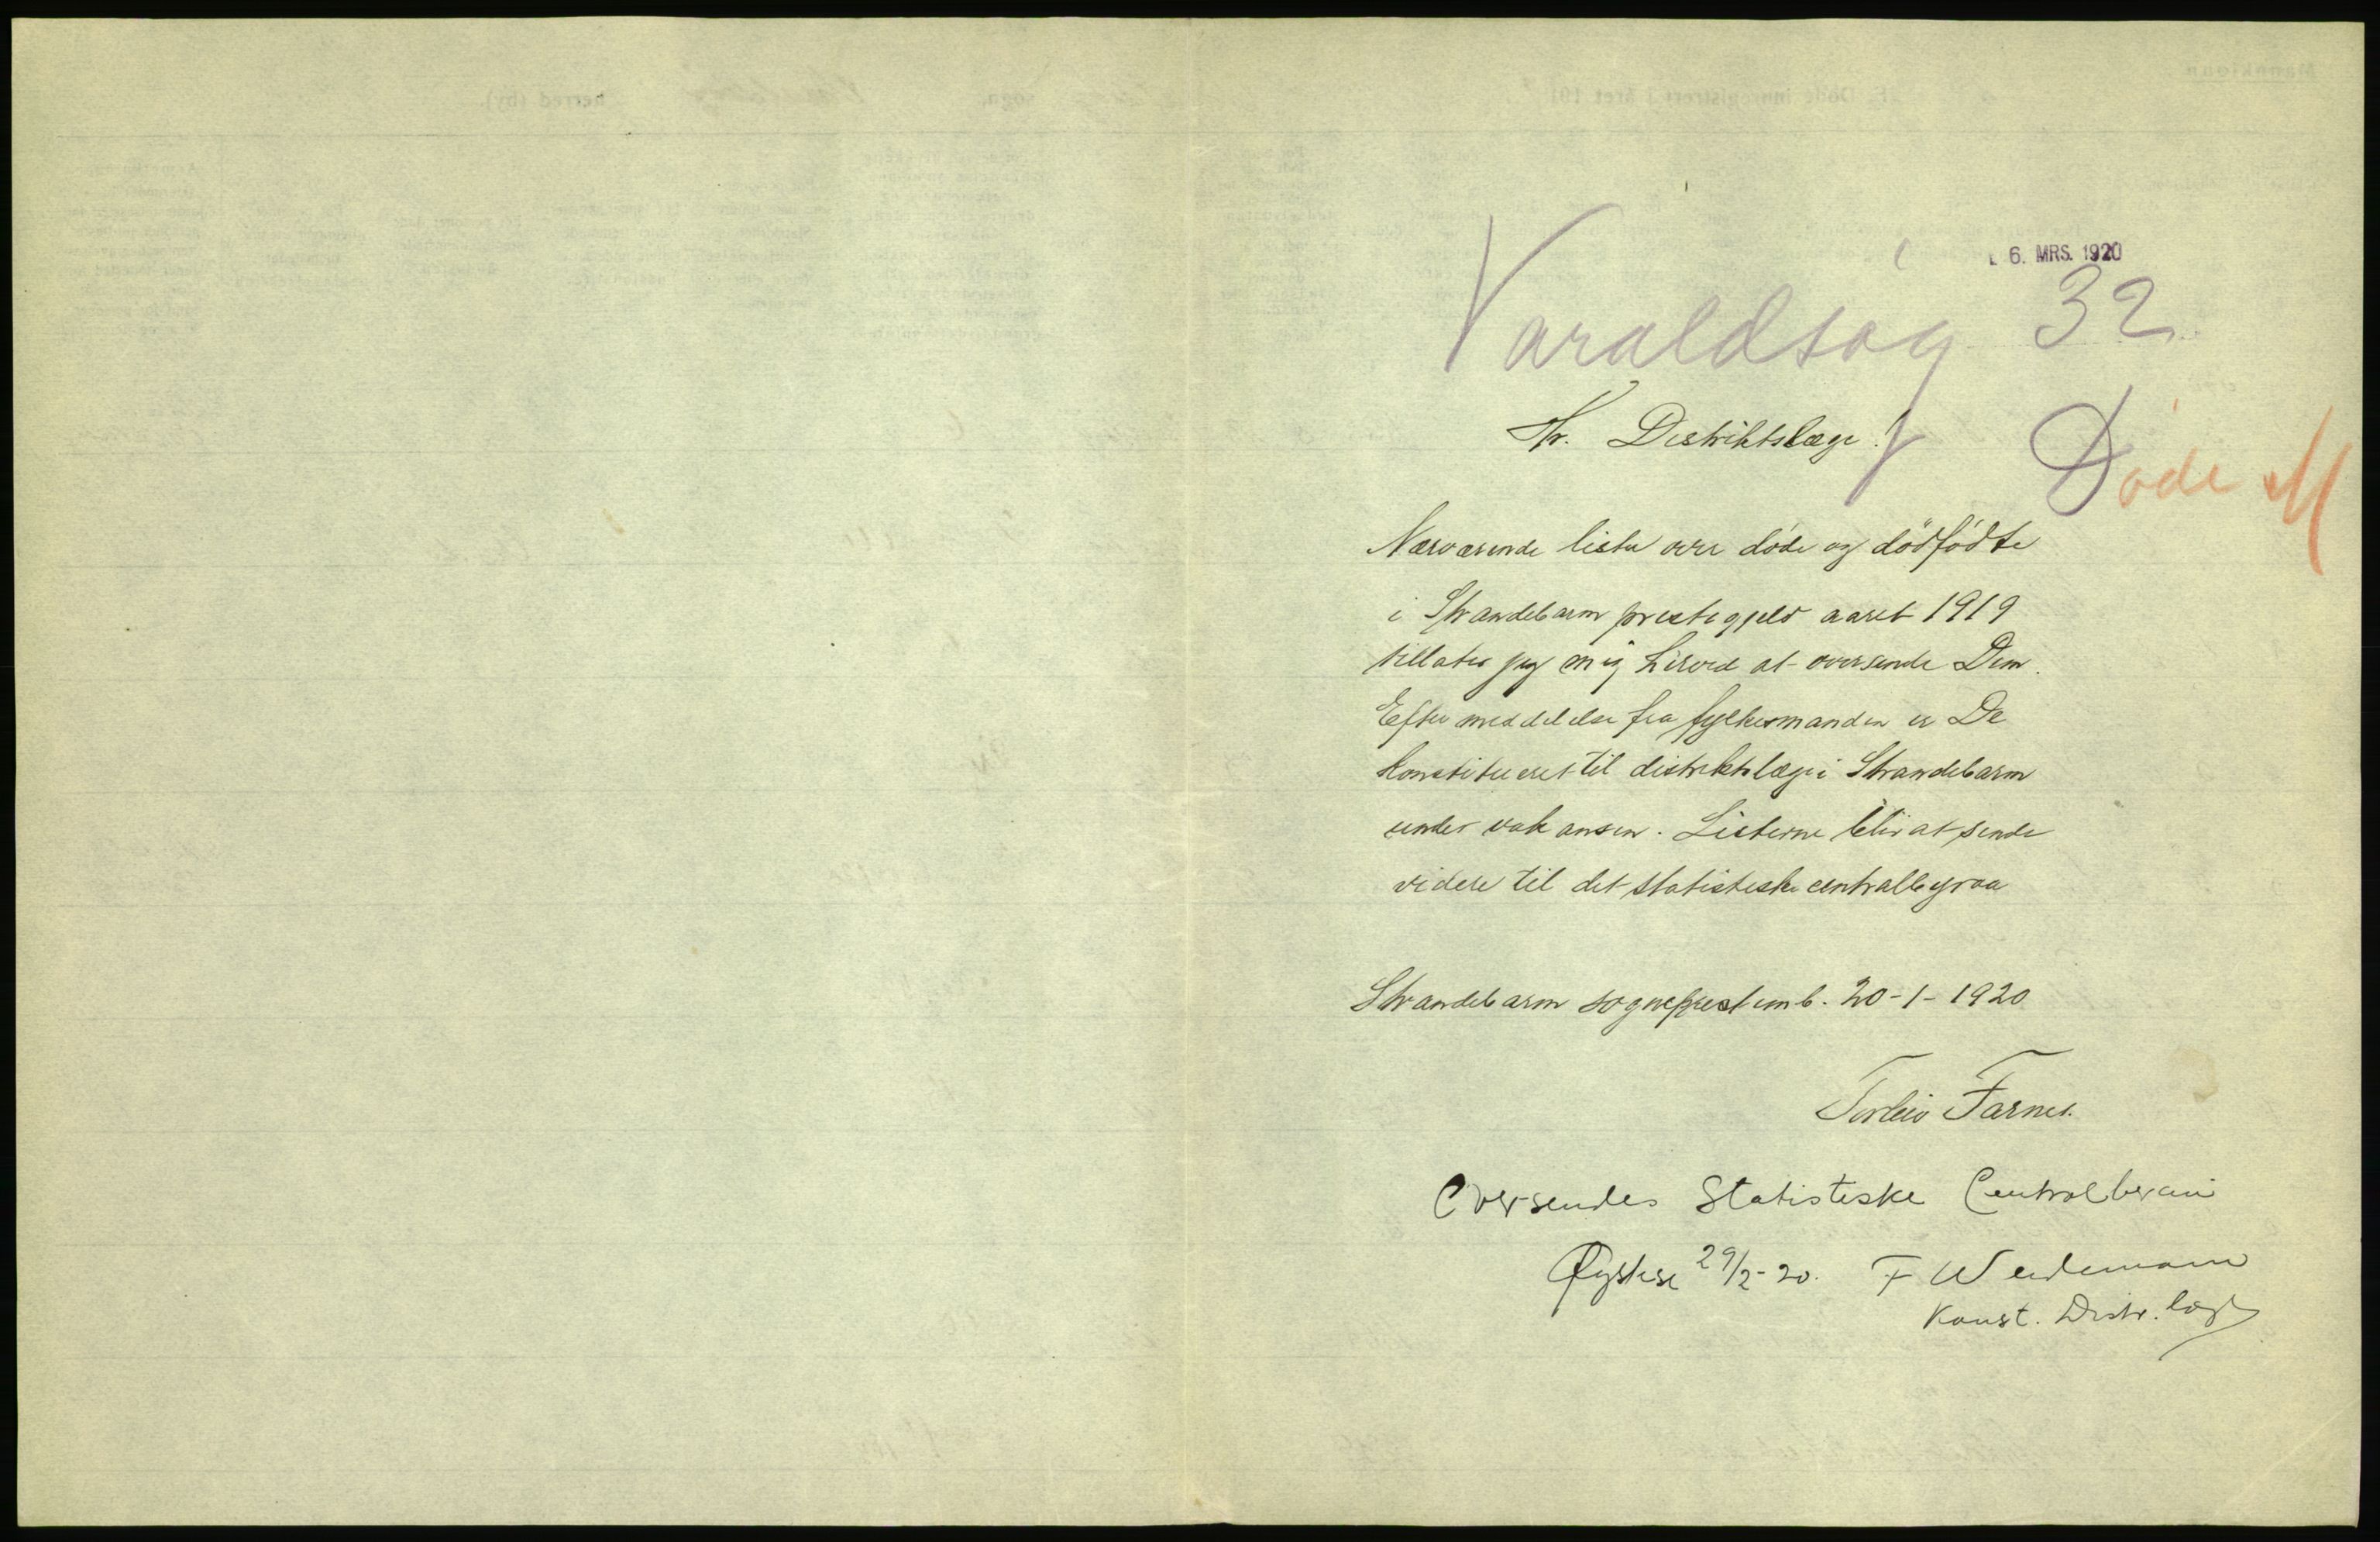 6. MRS. 1920
Varaldsøy 32
Hr. Distriktslæge!
Døde M
Nærværende liste over døde og dödfödte
i Strandebarm prestegjeld aaret 1919
tillater jeg mig herved at oversende Dem.
Efter meddelelse fra fylkesmanden er De
konstitueret til distriktslæge i Strandebarm
under vakansen. Listerne blir at sende
videre til det statistiske centralbyraa
Strandebarm sogneprestemb. 20-1-1920
Torleiv Farnes.
Oversendes Statistiske Centralbyraa
Øystese 29/2-20. F Weidemann
Konst. Distr. læge